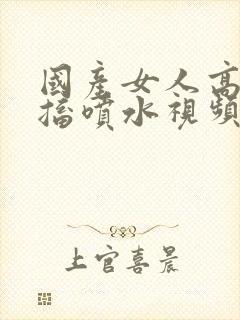 國產女人高
搐噴水視頻
上官喜晨